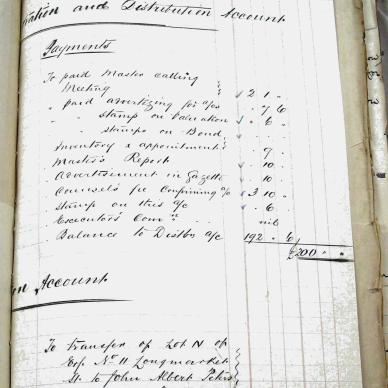 ation and Distribution Account
Payments
To paid Master calling
Meeting 2 1 .
" paid advertizing for a/cs . 7 6
" " stamp on Valuation . 6 .
" " stamps on Bond .
Inventory & appointment . 7 .
Master's Report . 10 .
Advertisement in Gazette . 10 .
Counsels fee Confirming a/c 3 10 .
Stamp on this a/c . 6 .
Executors Comn nil
Balance to Distbn a/c 192 . 6
£200 . .
on Account
To Transfer of Lot N of
Erf No 11 Longmarket
St to John Albert Peters